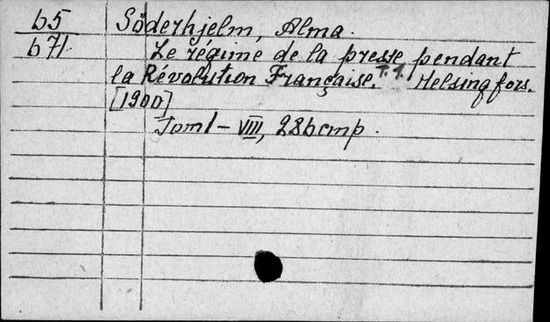 b5
b71
Söderhjelm, Alma.
Le régime de la presse pendant
la Révolution Française. T.1. Helsingfors.
[1900]
Tom I – VIII, 286 cmp.